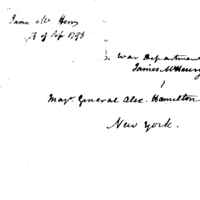 James McHenry
13 of Sep 1798
War Department
James McHenry
Majr. General Alex. Hamilton
New York.